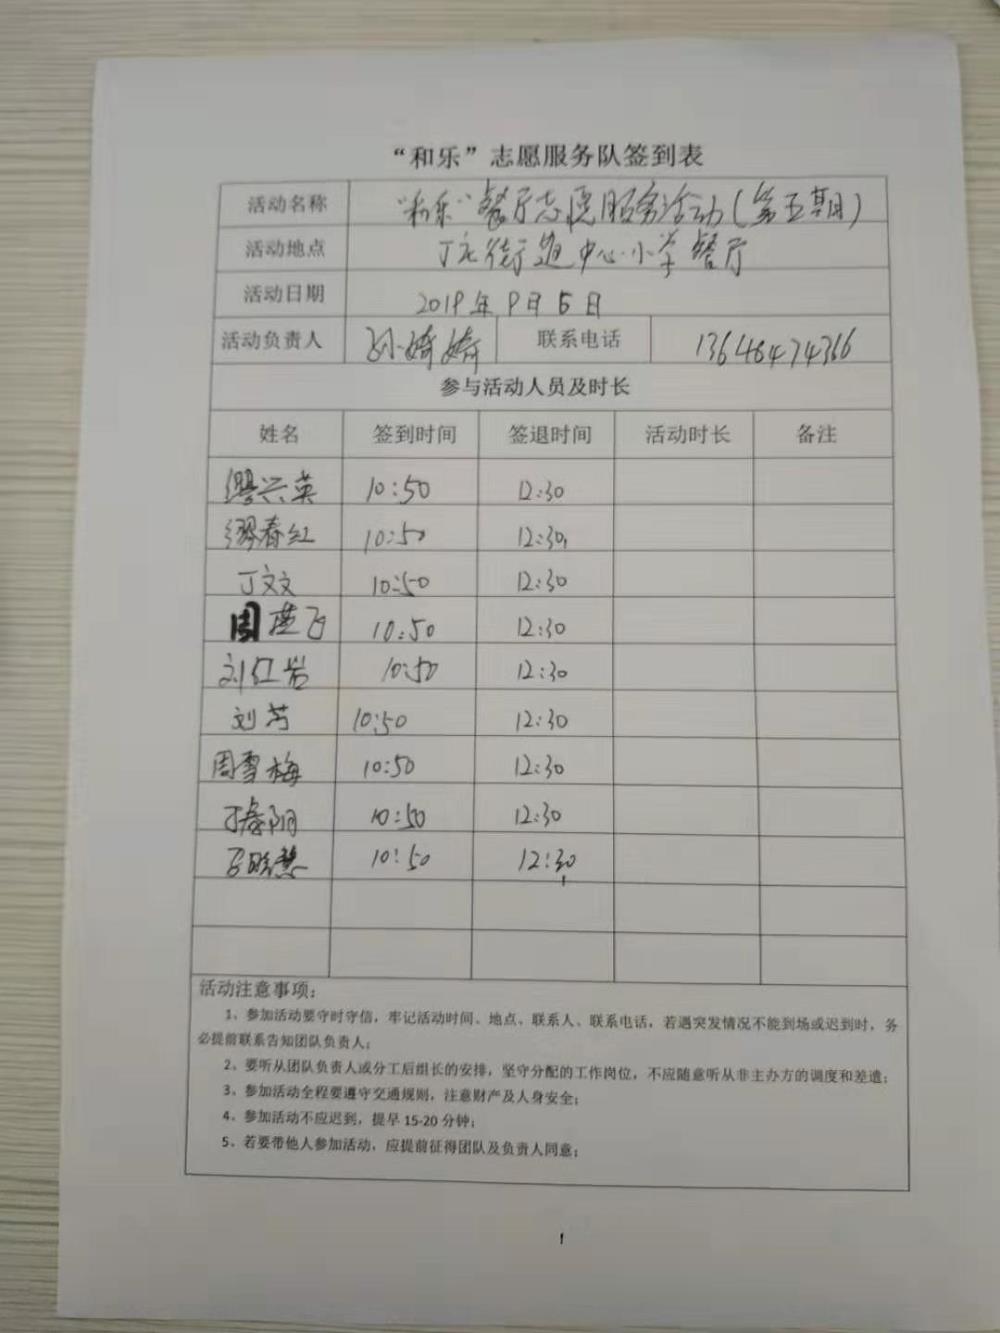 “和乐”志愿服务队签到表
活动名称 “和乐”餐厅志愿服务活动(第五期)
活动地点 丁庄街道中心小学餐厅
活动日期 2019年9月5日
活动负责人 孙婷婷 联系电话
参与活动人员及时长
姓名 签到时间 签退时间 活动时长 备注
缪兴英 10:50 12:30
缪春红 10:50 12:30
丁文文 10:50 12:30
周燕飞 10:50 12:30
刘红岩 10:50 12:30
刘芳 10:50 12:30
周雪梅 10:50 12:30
10:50 12:30
10:50 12:30
活动注意事项:
1、参加活动要守时守信,牢记活动时间、地点、联系人、联系电话,若遇突发情况不能到场或迟到时,务
必提前联系告知团队负责人;
2、要听从团队负责人或分工后组长的安排,坚守分配的工作岗位,不应随意听从非主办方的调度和差遣;
3、参加活动全程要遵守交通规则,注意财产及人身安全;
4、参加活动不应迟到,提早 15-20 分钟;
5、若要带他人参加活动,应提前征得团队及负责人同意;
1